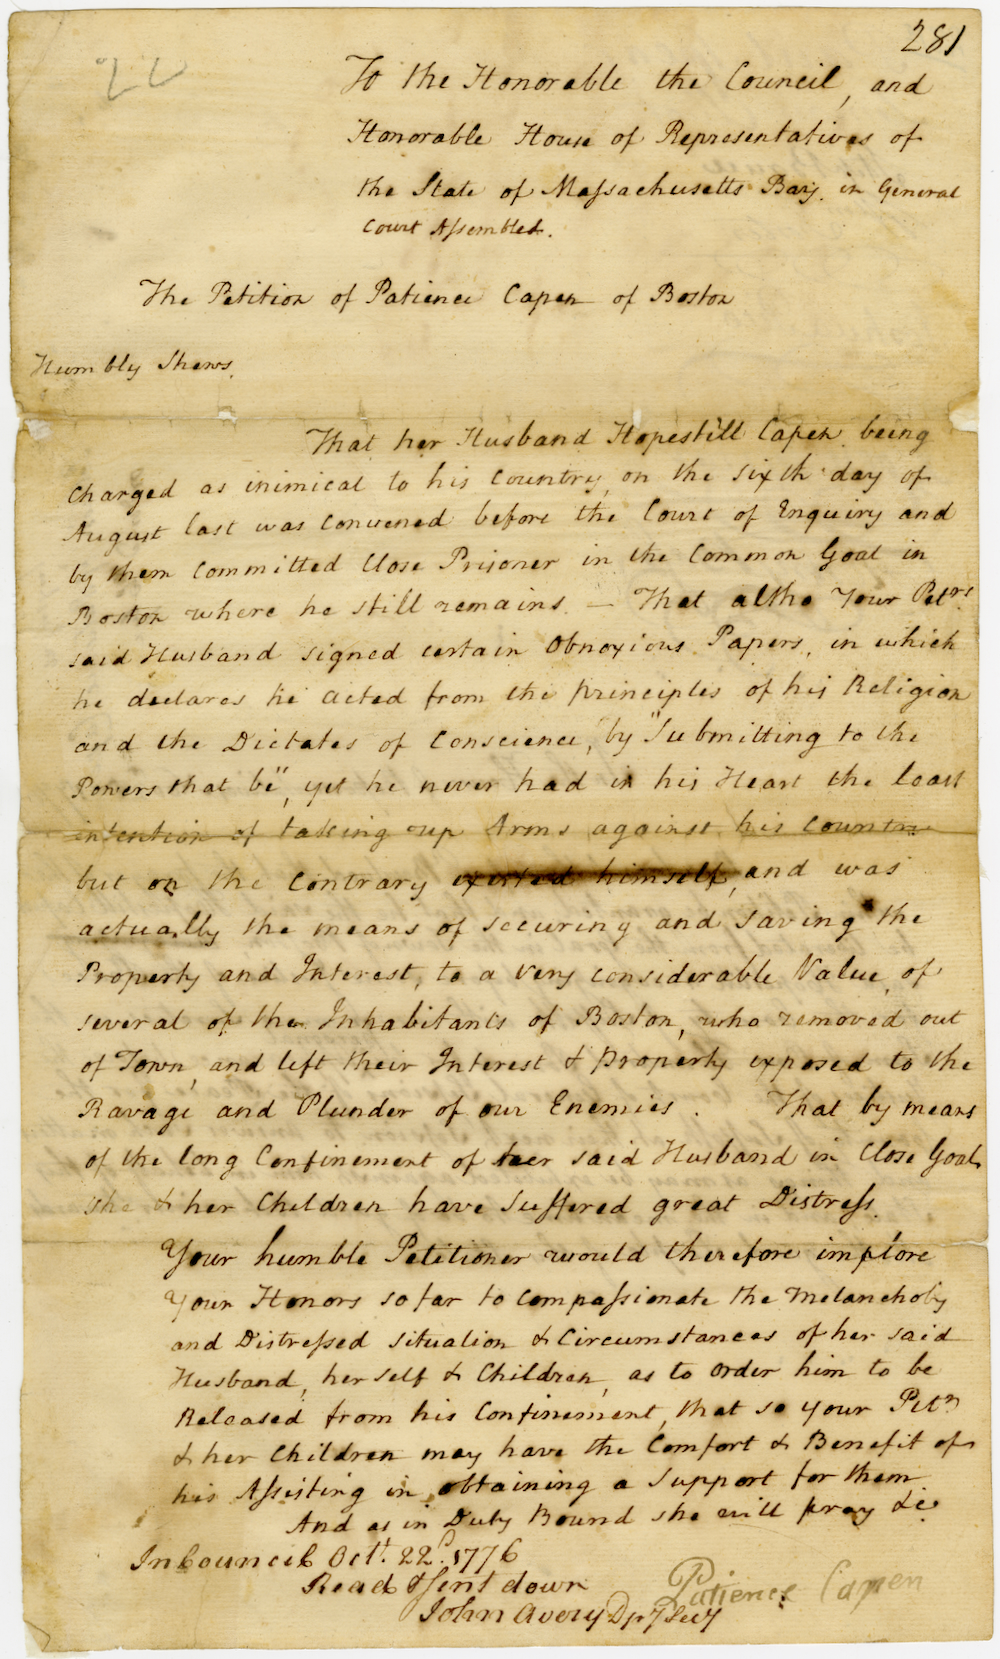 281
22
To the Honorable the Council, and
Honorable House of Representatives of
the State of Massachusetts Bay. in General
Court Assembled.
The Petition of Patience Capen of Boston
Humbly Shews.
That her Husband Hopestill Capen being
charged as inimical to his country, on the sixth day of
August last was convened before the Court of Enquiry and
by them committed Close Prisoner in the Common Goal in
Boston where he still remains. — That altho Your Petrs
said Husband signed certain Obnoxious Papers, in which
he declares he acted from the principles of his Religion
and the Dictates of Conscience, by "Submitting to the
Powers that be", yet he never had in his Heart the least
intention of taking up Arms against his Country
but on the contrary exerted himself, and was
actually the means of securing and saving the
Property and Interest, to a very considerable Value, of
several of the Inhabitants of Boston, who removed out
of Town, and left their Interest & property exposed to the
Ravage and Plunder of our Enemies. That by means
of the long Confinement of her said Husband in Close Goal,
she & her Children have suffered great Distress.
Your humble Petitioner would therefore implore
Your Honors so far to compassionate the Melancholy
and Distressed situation & Circumstances of her said
Husband, her self & Children, as to order him to be
Released from his Confinement, that so your Petr
& her Children may have the Comfort & Benefit of
his Assisting in obtaining a support for them
And as in Duty Bound she will pray &c.
In Council Octr. 22d. 1776
Read & sent down
John Avery Dpy Secy
Patience Capen